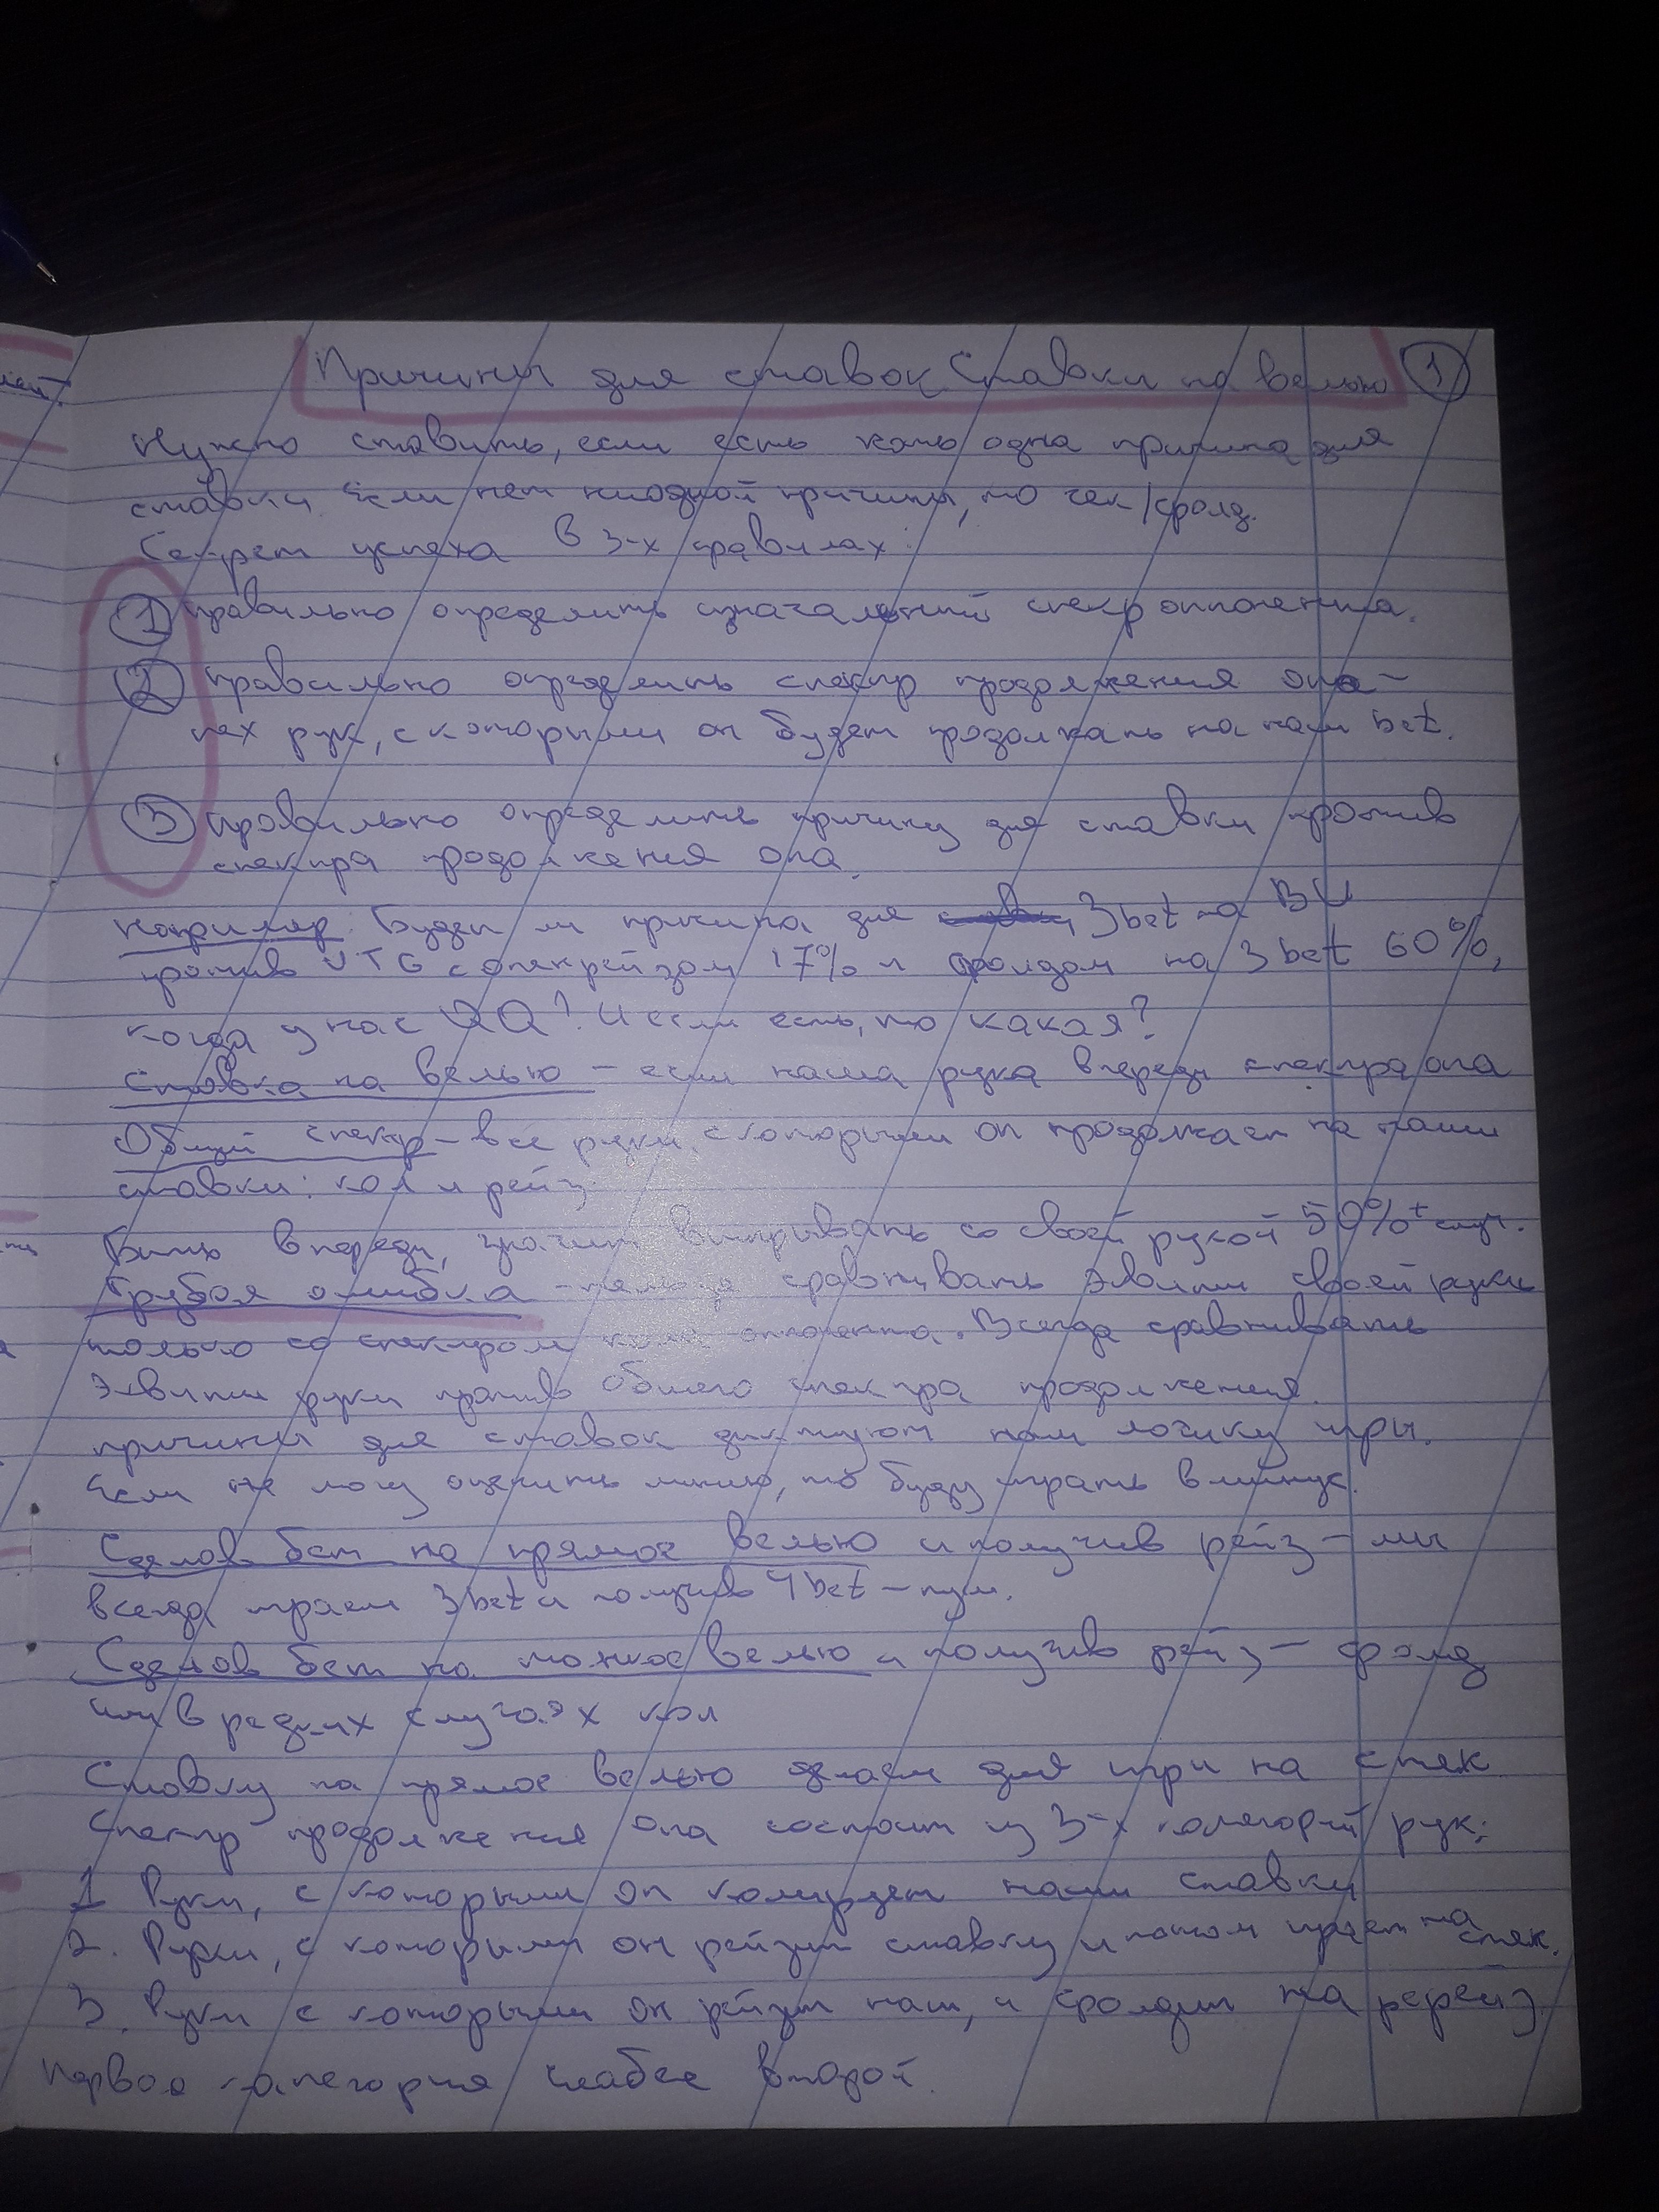 Причины для ставок. Ставки на велью 1
Нужно ставить, если есть хоть одна причина для
ставки. Если нет ниодной причины, то чек/фолд.
Секрет успеха в 3-х правилах:
1 правильно определить изначальный спекр оппонента.
2 правильно определить спектр продолжения опа-
тех рук, с которыми он будет продолжать на наш bet.
3 правильно определить причину для ставки против
спектра продолжения опа.
Например: Будет ли причина для 3bet на BU
против UTG с опенрейзом 17% и фолдом на 3bet 60%,
когда у нас QQ? И если есть, то какая?
Ставка на велью - если наша рука впереди спектра опа
Общий спектр - все руки, с которыми он продолжает на наши
ставки: кол и рейз.
Быть впереди, значит выигрывать со своей рукой 50%+ случ.
Грубая ошибка - нельзя сравнивать эквити своей руки
только со спектром кола оппонента. Всегда сравнивать
эквити руки против общего спектра продолжения.
причины для ставок диктуют нам логику игры.
Если не могу оценить линию, то буду играть в минус.
Сделав бет на прямое велью и получив рейз - мы
всегда играем 3bet и получив 4bet - пуш.
Сделав бет на тонкое велью и получив рейз - фолд
или в редких случаях кол
Ставку на прямое велью делаем для игры на стек
Спектр продолжения опа состоит из 3-х категорий рук:
1 Руки, с которыми он колирует наши ставки
2. Руки, с которыми он рейзит ставку и потом играет на стек.
3. Руки с которыми он рейзит нас, и фолдит на ререйз
Первая категория слабее второй.